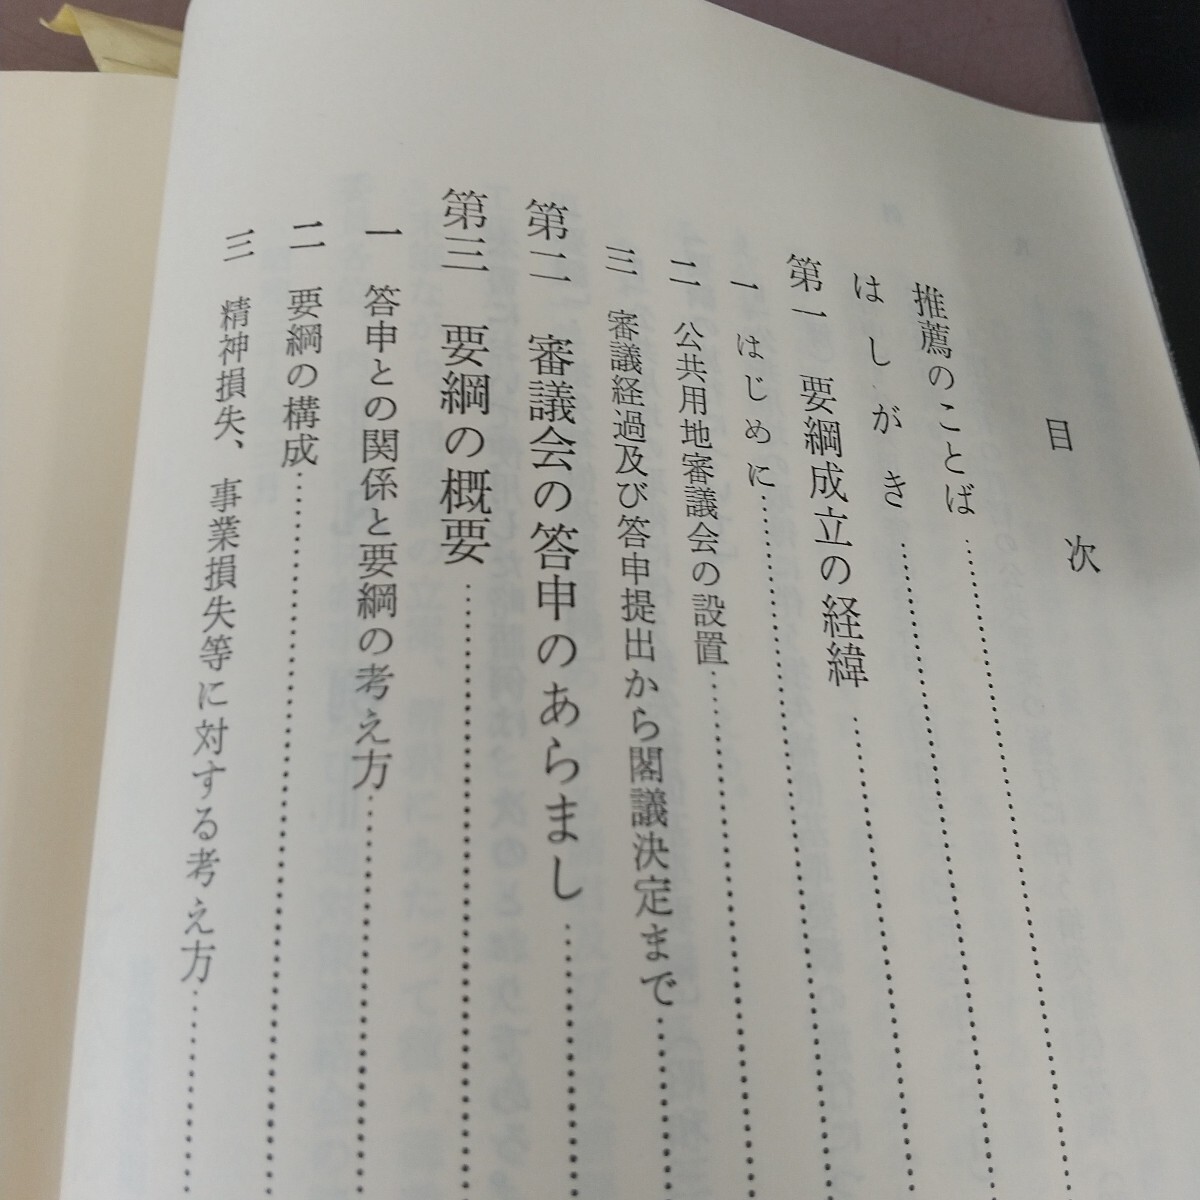 目次
推薦のことば
はしがき
第一 要綱成立の経緯
一 はじめに
二 公共用地審議会の設置
三 審議経過及び答申提出から閣議決定まで
第二 審議会の答申のあらまし
第三 要綱の概要
一 答申との関係と要綱の考え方
二 要綱の構成
三 精神損失、事業損失等に対する考え方